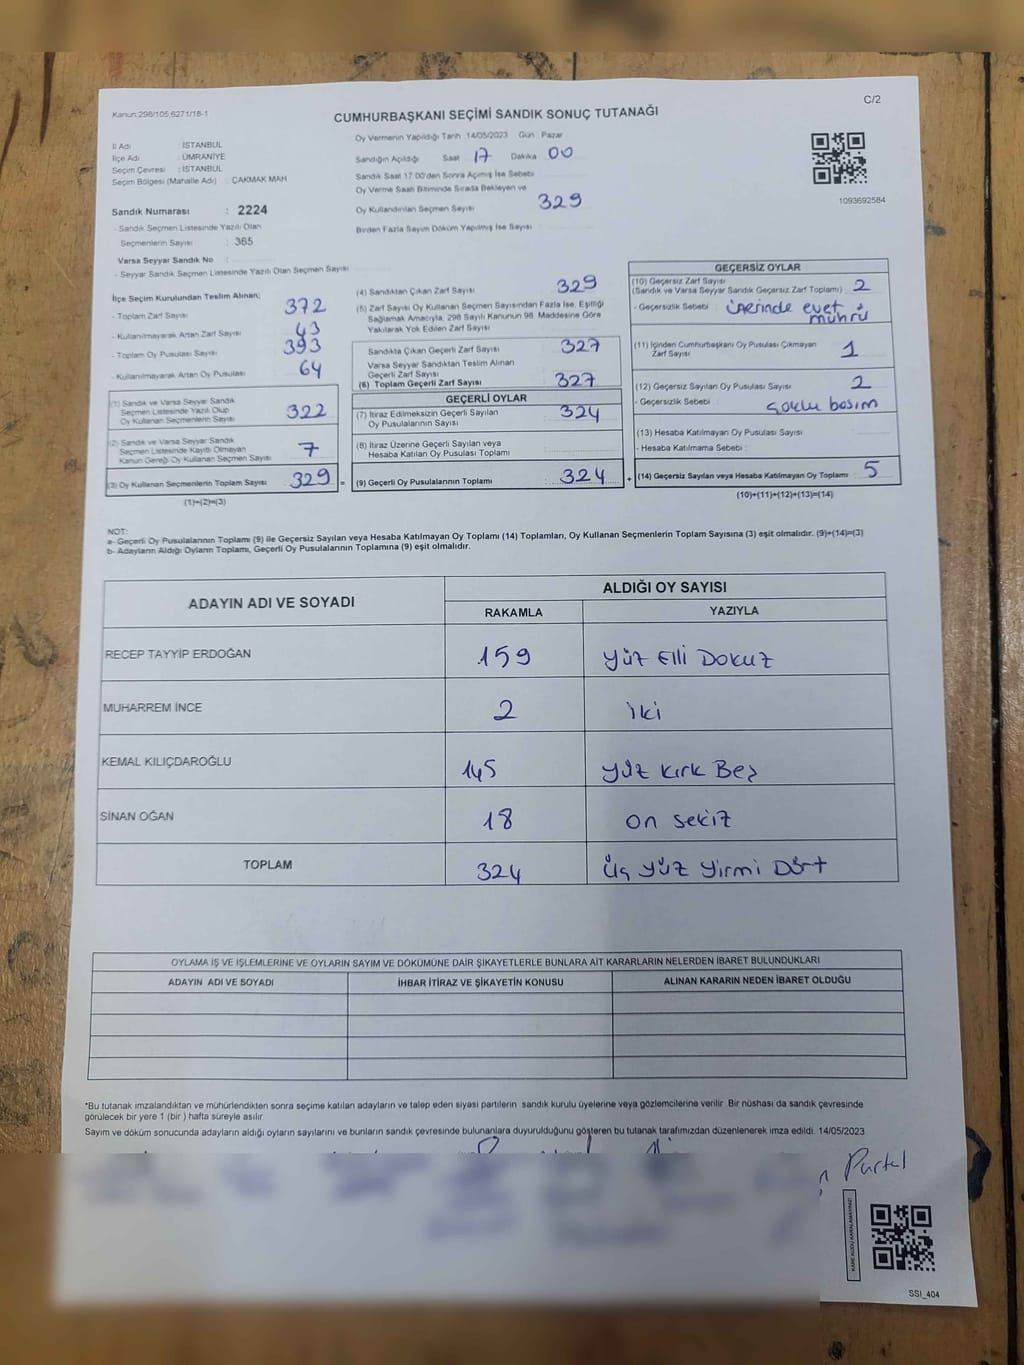 C/2
Kanun:298/105,6271/18-1
CUMHURBAŞKANI SEÇİMİ SANDIK SONUÇ TUTANAĞI
İl Adı : İSTANBUL
İlçe Adı : ÜMRANİYE
Seçim Çevresi : İSTANBUL
Seçim Bölgesi (Mahalle Adı) : ÇAKMAK MAH
Sandık Numarası : 2224
- Sandık Seçmen Listesinde Yazılı Olan
Seçmenlerin Sayısı : 365
Varsa Seyyar Sandık No :
- Seyyar Sandık Seçmen Listesinde Yazılı Olan Seçmen Sayısı
Oy Vermenin Yapıldığı Tarih :14/05/2023 Gün : Pazar
Sandığın Açıldığı Saat 17 Dakika 00
Sandık Saat 17:00'den Sonra Açılmış İse Sebebi
Oy Verme Saati Bitiminde Sırada Bekleyen ve
Oy Kullandırılan Seçmen Sayısı 329
Birden Fazla Sayım Döküm Yapılmış İse Sayısı
1093692584
İlçe Seçim Kurulundan Teslim Alınan;
- Toplam Zarf Sayısı 372
- Kullanılmayarak Artan Zarf Sayısı 43
- Toplam Oy Pusulası Sayısı 393
- Kullanılmayarak Artan Oy Pusulası 64
(1) Sandık ve Varsa Seyyar Sandık
Seçmen Listesinde Yazılı Olup
Oy Kullanan Seçmenlerin Sayısı 322
(2) Sandık ve Varsa Seyyar Sandık
Seçmen Listesinde Kayıtlı Olmayan
Kanun Gereği Oy Kullanan Seçmen Sayısı 7
(3) Oy Kullanan Seçmenlerin Toplam Sayısı 329 =
(1)+(2)=(3)
(4) Sandıktan Çıkan Zarf Sayısı 329
(5) Zarf Sayısı Oy Kullanan Seçmen Sayısından Fazla İse, Eşitliği
Sağlamak Amacıyla, 298 Sayılı Kanunun 98. Maddesine Göre
Yakılarak Yok Edilen Zarf Sayısı
Sandıkta Çıkan Geçerli Zarf Sayısı 327
Varsa Seyyar Sandıktan Teslim Alınan
Geçerli Zarf Sayısı
(6) Toplam Geçerli Zarf Sayısı 327
GEÇERLİ OYLAR
(7) İtiraz Edilmeksizin Geçerli Sayılan
Oy Pusulalarının Sayısı 324
(8) İtiraz Üzerine Geçerli Sayılan veya
Hesaba Katılan Oy Pusulası Toplamı
(9) Geçerli Oy Pusulalarının Toplamı 324 +
GEÇERSİZ OYLAR
(10) Geçersiz Zarf Sayısı
(Sandık ve Varsa Seyyar Sandık Geçersiz Zarf Toplamı) 2
- Geçersizlik Sebebi üzerinde evet
mührü
(11) İçinden Cumhurbaşkanı Oy Pusulası Çıkmayan
Zarf Sayısı 1
(12) Geçersiz Sayılan Oy Pusulası Sayısı 2
- Geçersizlik Sebebi çoklu basım
(13) Hesaba Katılmayan Oy Pusulası Sayısı
- Hesaba Katılmama Sebebi
(14) Geçersiz Sayılan veya Hesaba Katılmayan Oy Toplamı 5
(10)+(11)+(12)+(13)=(14)
NOT:
a- Geçerli Oy Pusulalarının Toplamı (9) ile Geçersiz Sayılan veya Hesaba Katılmayan Oy Toplamı (14) Toplamları, Oy Kullanan Seçmenlerin Toplam Sayısına (3) eşit olmalıdır. (9)+(14)=(3)
b- Adayların Aldığı Oyların Toplamı, Geçerli Oy Pusulalarının Toplamına (9) eşit olmalıdır.
ADAYIN ADI VE SOYADI ALDIĞI OY SAYISI
RAKAMLA YAZIYLA
RECEP TAYYİP ERDOĞAN 159 Yüz Elli Dokuz
MUHARREM İNCE 2 iki
KEMAL KILIÇDAROĞLU 145 Yüz Kırk Beş
SİNAN OĞAN 18 on sekiz
TOPLAM 324 Üç Yüz Yirmi Dört
OYLAMA İŞ VE İŞLEMLERİNE VE OYLARIN SAYIM VE DÖKÜMÜNE DAİR ŞİKAYETLERLE BUNLARA AİT KARARLARIN NELERDEN İBARET BULUNDUKLARI
ADAYIN ADI VE SOYADI İHBAR İTİRAZ VE ŞİKAYETİN KONUSU ALINAN KARARIN NEDEN İBARET OLDUĞU
*Bu tutanak imzalandıktan ve mühürlendikten sonra seçime katılan adayların ve talep eden siyasi partilerin sandık kurulu üyelerine veya gözlemcilerine verilir. Bir nüshası da sandık çevresinde
görülecek bir yere 1 (bir ) hafta süreyle asılır.
Sayım ve döküm sonucunda adayların aldığı oyların sayılarını ve bunların sandık çevresinde bulunanlara duyurulduğunu gösteren bu tutanak tarafımızdan düzenlenerek imza edildi. 14/05/2023
KARE KODU KARALAMAYINIZ!
SSI_404